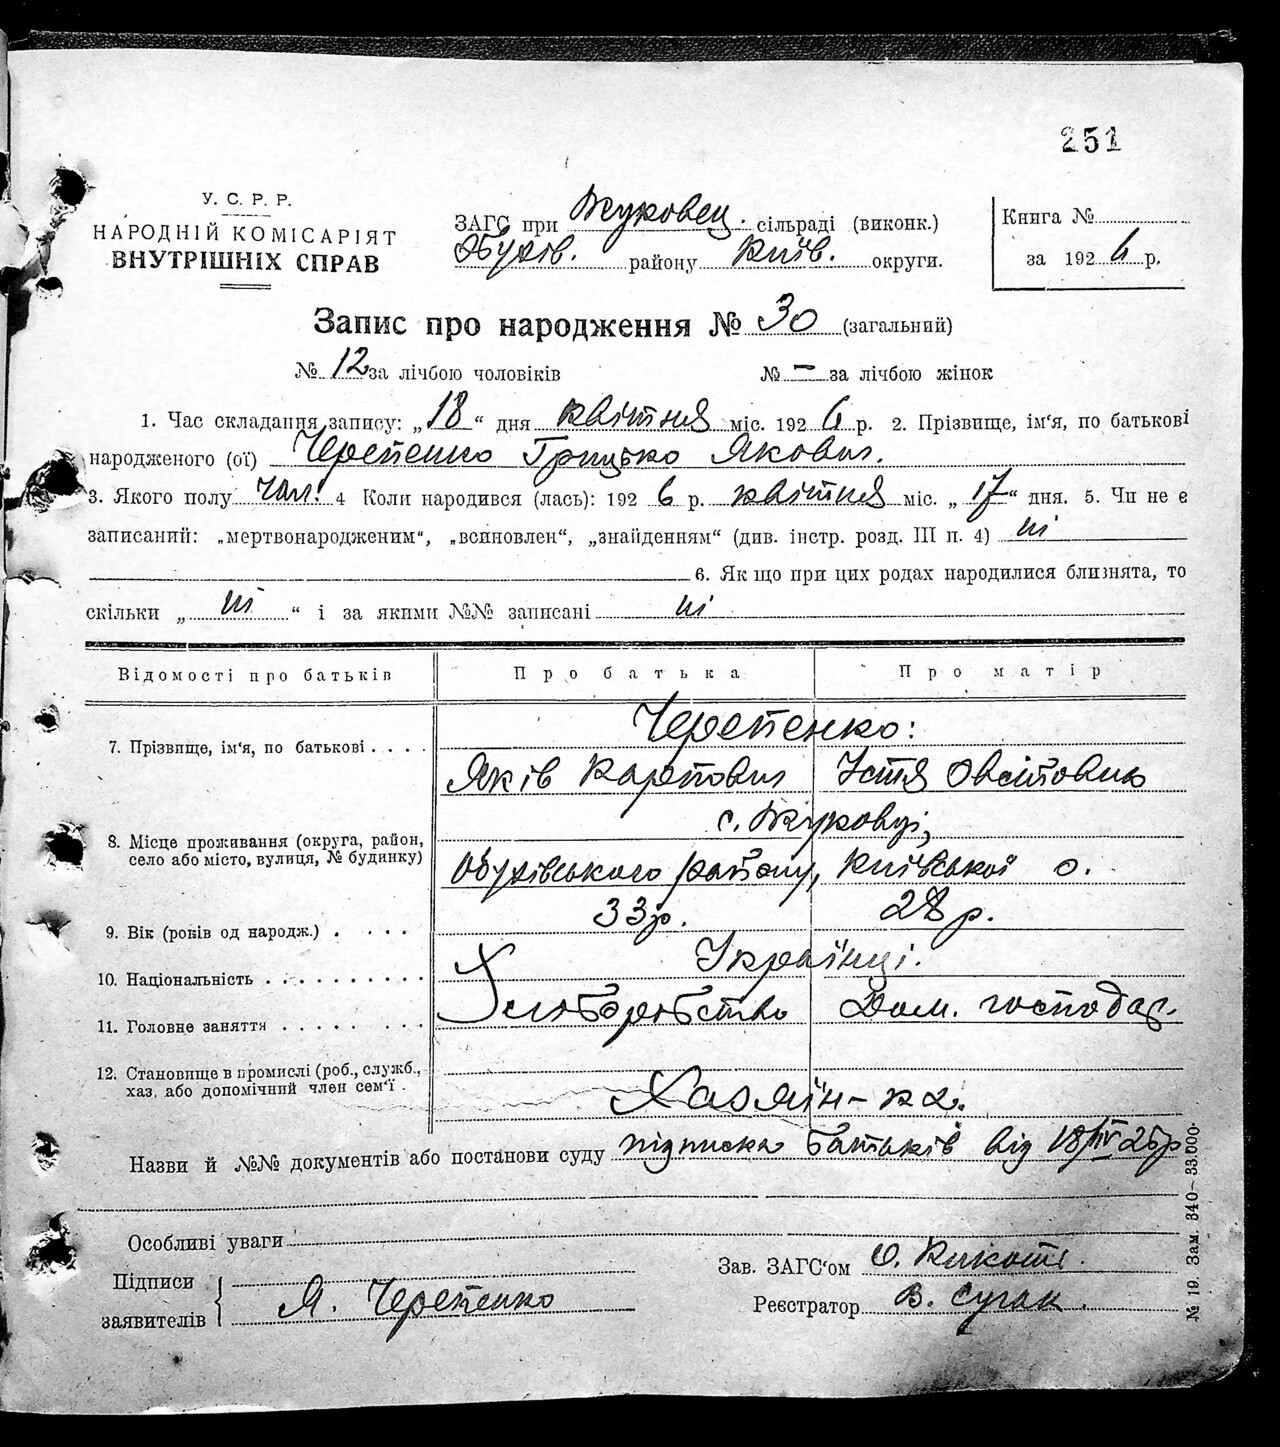 251
У. С. Р. Р.
НАРОДНІЙ КОМІСАРІЯТ
ВНУТРІШНІХ СПРАВ
ЗАГС при Жуковец. сільраді (виконк.)
Обухів. району Київ. округи.
Книга №
за 1926 р.
Запис про народження № 30 (загальний)
№ 12 за лічбою чоловіків № — за лічбою жінок
1. Час складання запису: „18“ дня квітня міс. 1926 р. 2. Прізвище, ім‘я, по батькові
народженого (ої) Черепенко Грицько Якович.
3. Якого полу чол. 4 Коли народився (лась): 1926 р. квітня міс. „17“ дня. 5. Чи не є
записаний: „мертвонародженим“, „всиновлен“, „знайденням“ (див. інстр. розд. III п. 4) ні
6. Як що при цих родах народилися близнята, то
скільки „ ні “ і за якими №№ записані ні
Відомості про батьків Про батька Про матір
Черепенко:
7. Прізвище, ім‘я, по батькові . . . .
Яків Карпович Устя Овсіївна
с. Жуковці,
8. Місце проживання (округа, район,
село або місто, вулиця, № будинку)
Обухівського району, Київської о.
9. Вік (років од народж.) . . . . 33 р. 28 р.
10. Національність . . . . . . . . . Українці.
11. Головне заняття . . . . . . . . Хліборобство Дом. господар.
12. Становище в промислі (роб., служб.,
хаз. або допомічний член сем‘ї .
Хазяїн-ка.
Назви й №№ документів або постанови суду підписка батьків від 18/IV 26 р
Особливі уваги
Підписи
заявителів
Я. Черепенко
Зав. ЗАГС‘ом О. Кикоть.
Реєстратор В. Сугак.
№ 19. Зам. 340—33.000